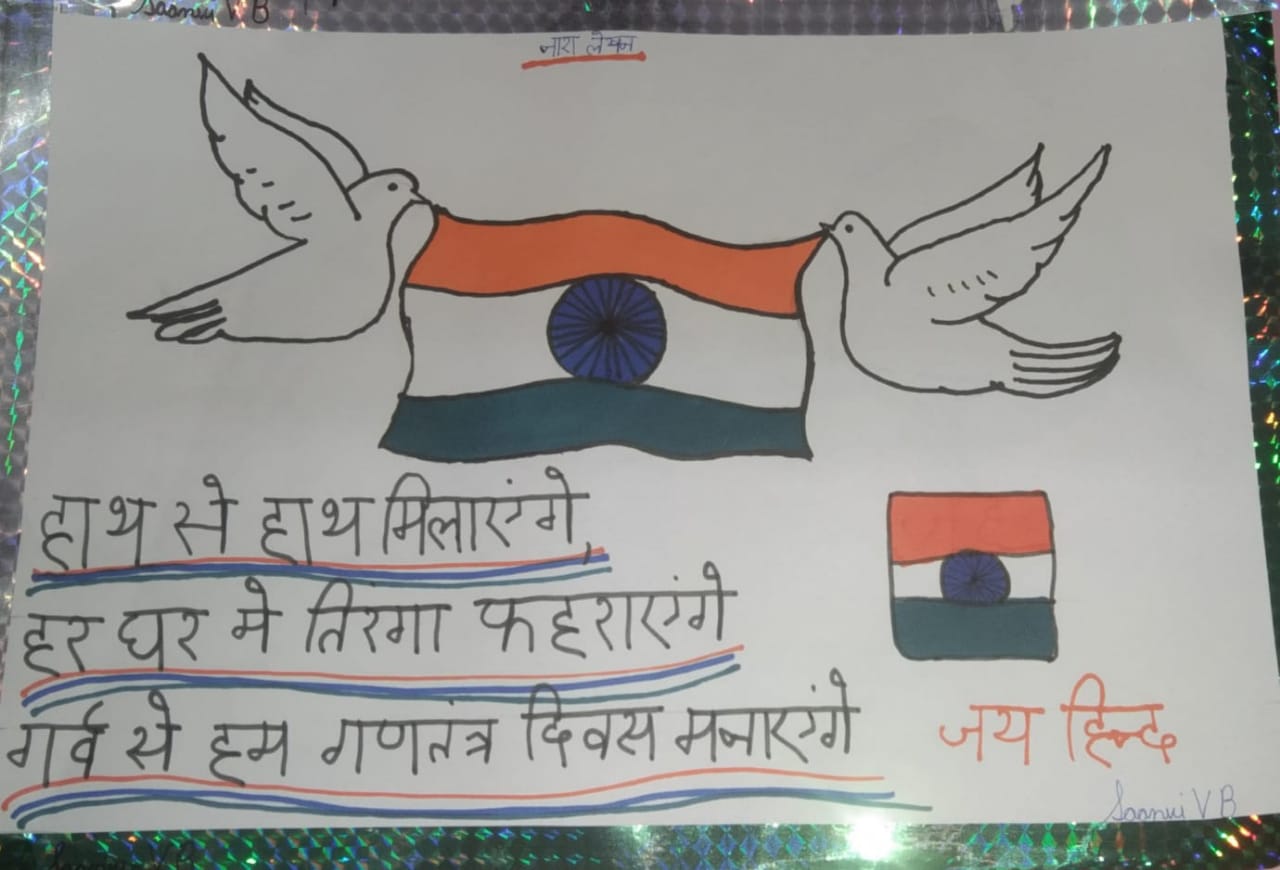 Saanvi V B
नारा लेखन
हाथ से हाथ मिलाएंगे,
हर घर मे तिरंगा फहराएंगे
गर्व से हम गणतंत्र दिवस मनाएंगे
जय हिन्द
Saanvi V B
Saanvi V B